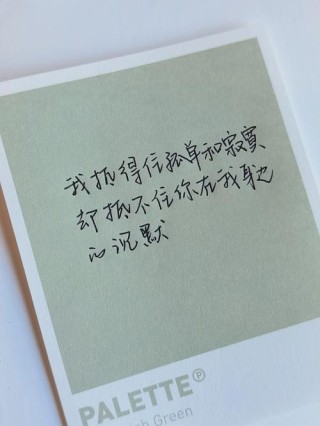 我抵得住孤单和寂寞
却抵不住你在我身边
心沉默
PALETTE®
Green